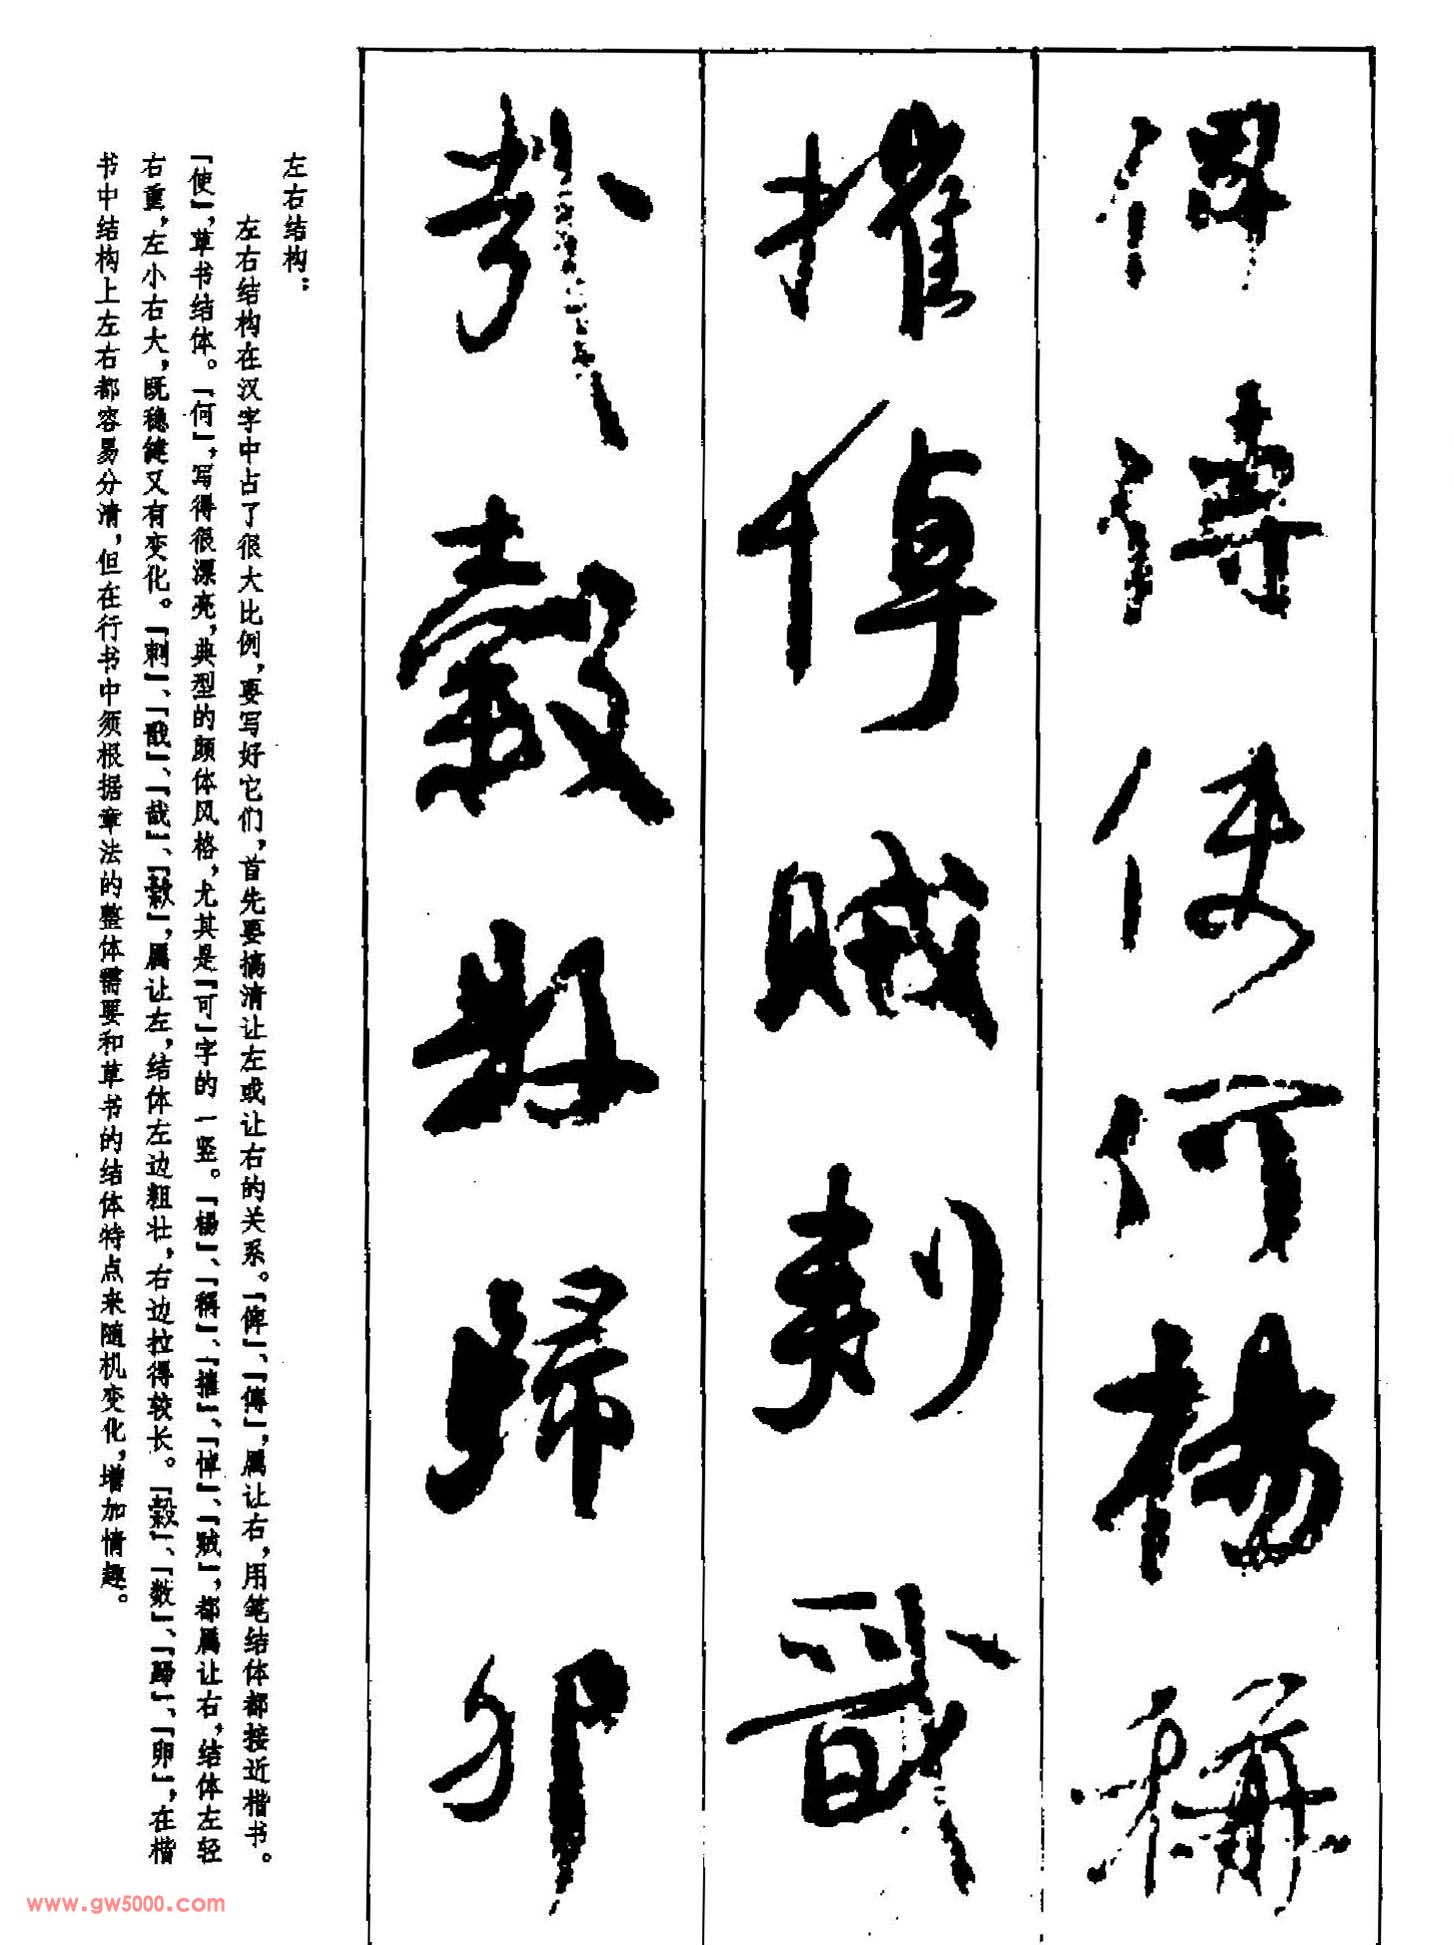 俾傅使何楊稱
摧悼賊刺戩
哉縠數歸卯
左右结构：
左右结构在汉字中占了很大比例，要写好它们，首先要搞清让左或让右的关系。「俾」、「傅」，属让右，用笔结体都接近楷书。
「使」，草书结体。「何」，写得很漂亮，典型的颜体风格，尤其是「可」字的一竖。「楊」、「稱」、「摧」、「悼」、「贼」，都属让右，结体左轻
右重，左小右大，既稳健又有变化。「刺」、「戬」、「哉」、「縠」，属让左，结体左边粗壮，右边拉得较长。「縠」、「数」、「歸」、「卯」，在楷
书中结构上左右都容易分清，但在行书中须根据章法的整体需要和草书的结体特点来随机变化，增加情趣。
www.gw5000.com